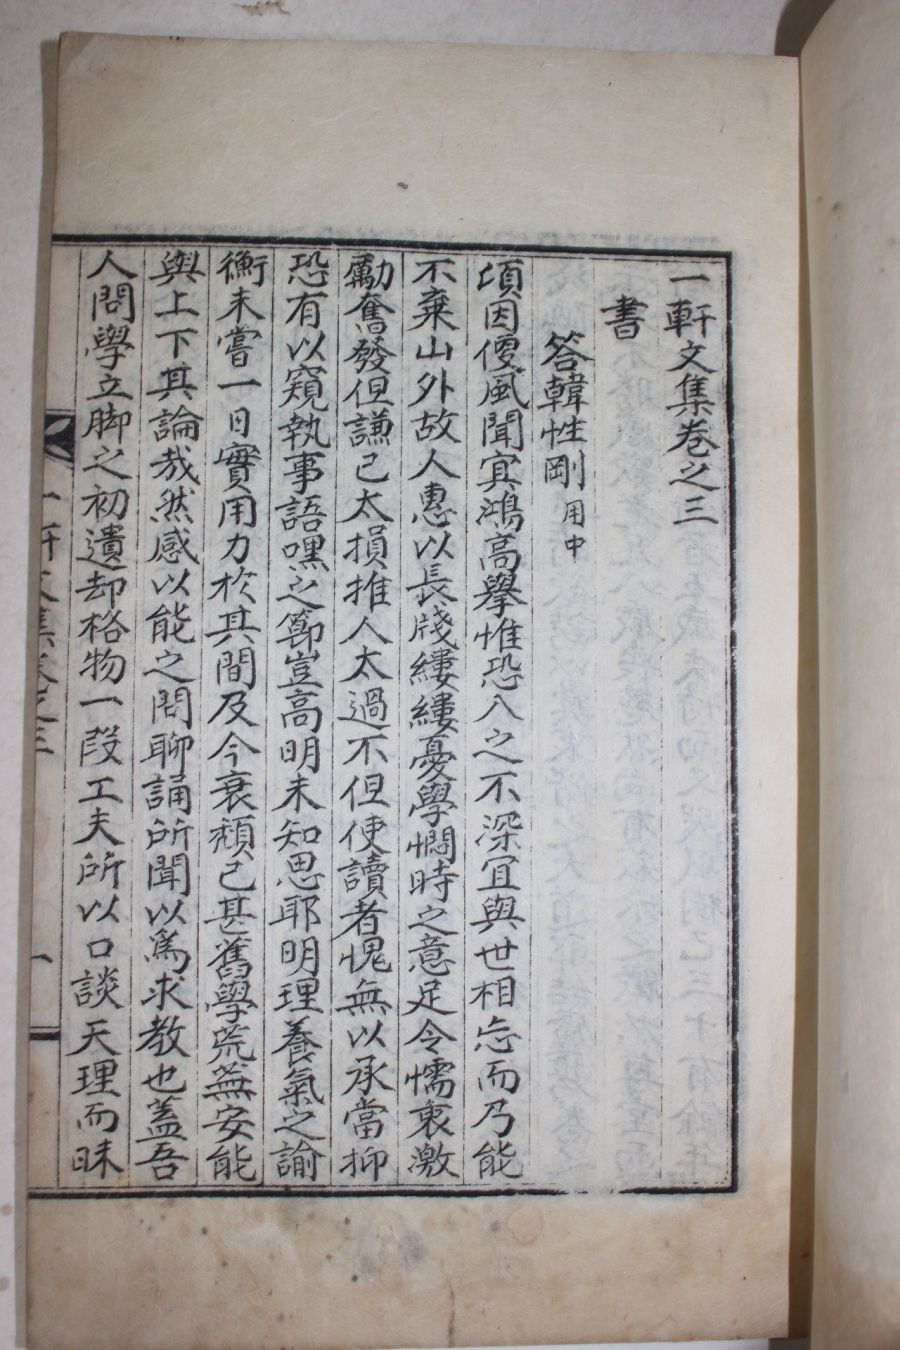 一軒文集卷之三
書
答韓性剛 用中
頃因便風聞寘鴻高擧惟恐入之不深宜與世相忘而乃能
不棄山外故人惠以長牋縷縷憂學憫時之意足令懦衷激
勵奮發但謙己太損推人太過不但使讀者愧無以承當抑
恐有以窺執事語嘿之節豈高明未知思耶明理養氣之諭
衡未嘗一日實用力於其間及今衰頹已甚舊學荒蕪安能
與上下其論哉然感以能之問聊誦所聞以爲求教也蓋吾
人問學立脚之初遺却格物一段工夫所以口談天理而昧
一軒文集卷之三 一